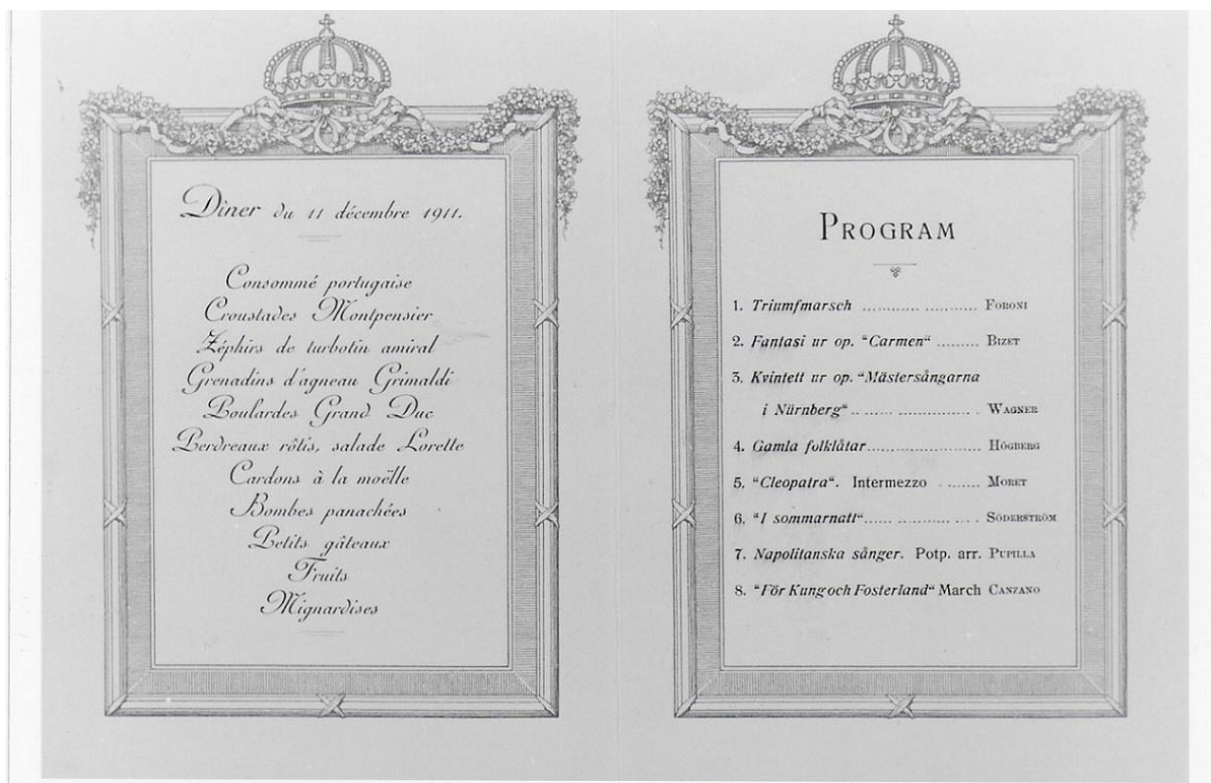 Dîner du 11 décembre 1911.
Consommé portugaise
Croustades Montpensier
Zéphirs de turbotin amiral
Grenadins d'agneau Grimaldi
Poulardes Grand Duc
Perdreaux rôtis, salade Lorette
Cardons à la moëlle
Bombes panachées
Petits gâteaux
Fruits
Mignardises
PROGRAM
1. Triumfmarsch ........................ FORONI
2. Fantasi ur op. "Carmen" ......... BIZET
3. Kvintett ur op. "Mästersångarna
i Nürnberg" ....................... WAGNER
4. Gamla folklåtar........................ HÖGBERG
5. "Cleopatra". Intermezzo ........ MORET
6. "I sommarnatt"....................... SÖDERSTRÖM
7. Napolitanska sånger. Potp. arr. PUPILLA
8. "För Kung och Fosterland" March CANZANO